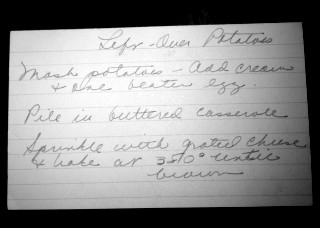 Left-Over Potatoes
Mash potatoes - Add cream
& one beaten egg.
Pile in buttered casserole
Sprinkle with grated cheese
& bake at 350° until
brown